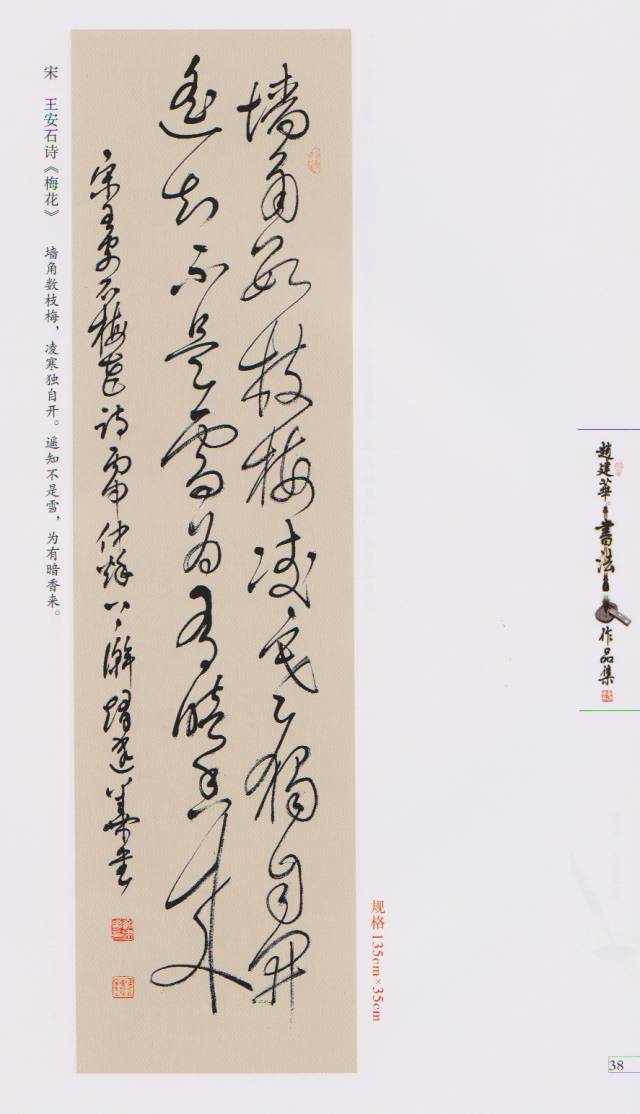 墙角数枝梅凌寒獨自開
遥知不是雪为有暗香来
宋王安石梅花诗丙申仲秋上澣趙建華書
宋 王安石诗《梅花》
墙角数枝梅，凌寒独自开。遥知不是雪，为有暗香来。
规格 135cm×35cm
趙建華書法作品集
38